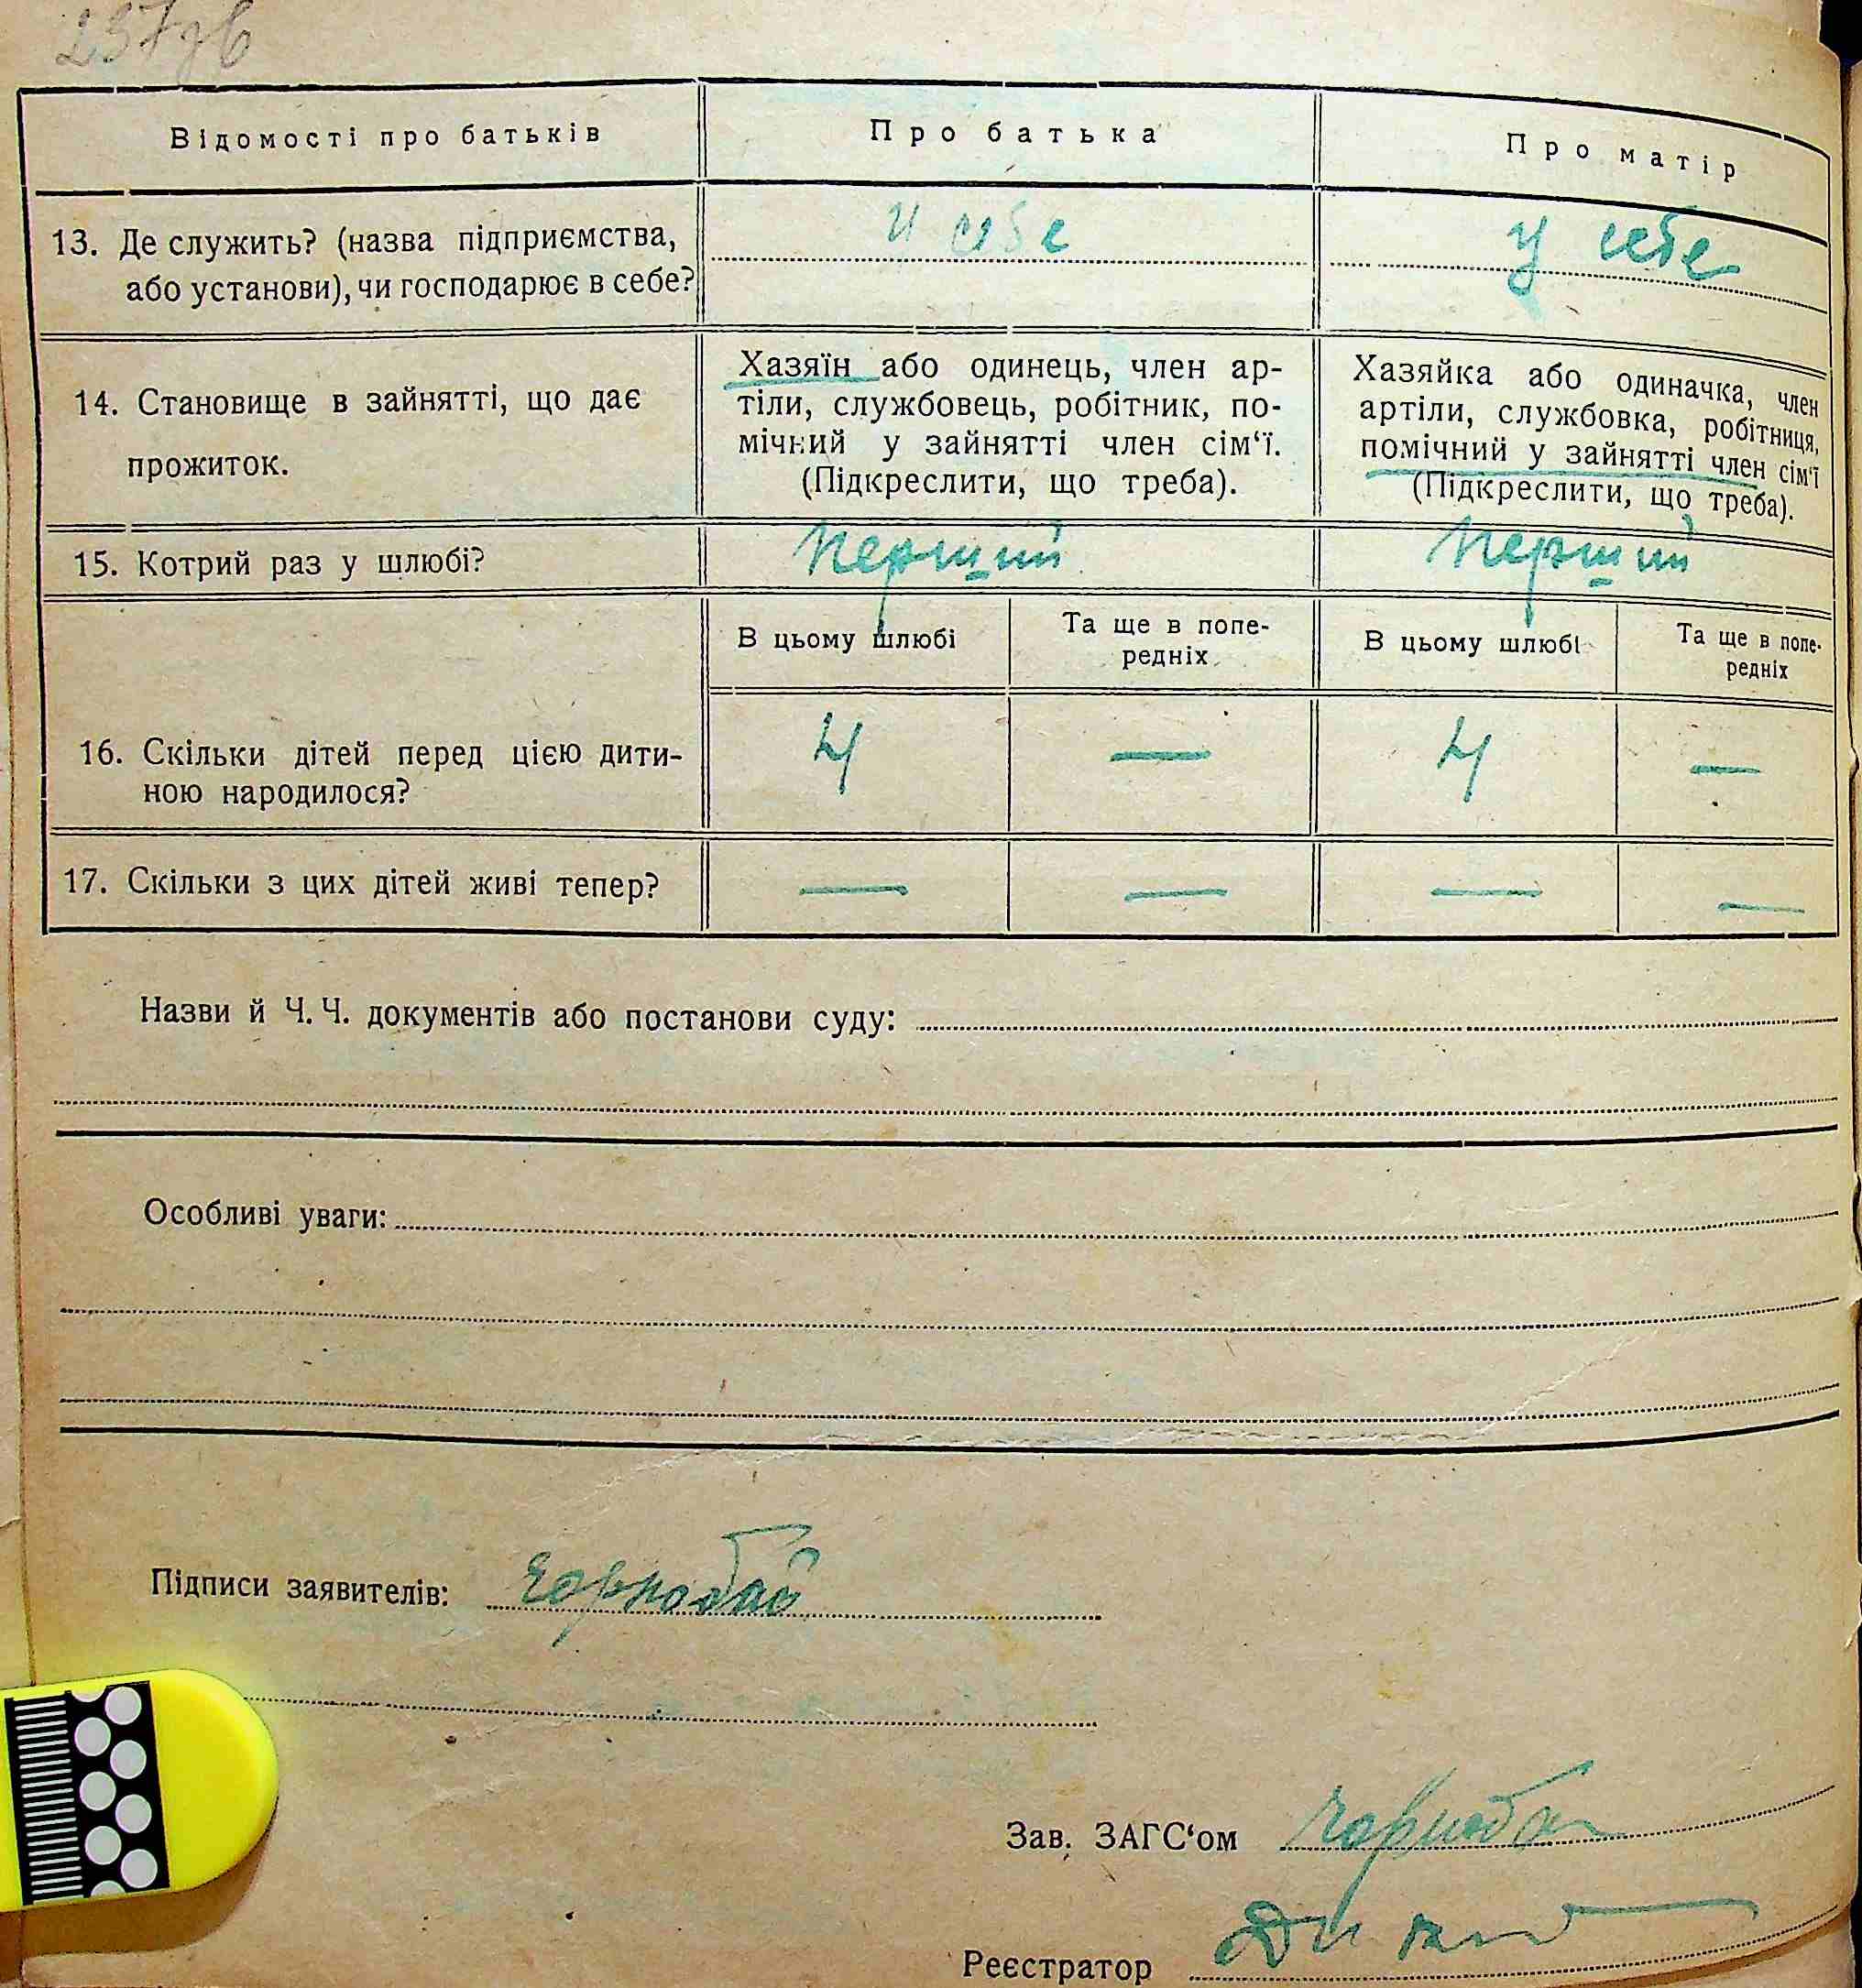 237зв
Відомості про батьків
Про батька
Про матір
13. Де служить? (назва підприємства,
або установи), чи господарює в себе?
у себе
у себе
14. Становище в зайнятті, що дає
прожиток.
Хазяїн або одинець, член ар-
тіли, службовець, робітник, по-
мічний у зайнятті член сім‘ї.
(Підкреслити, що треба).
Хазяйка або одиначка, член
артіли, службовка, робітниця,
помічний у зайнятті член сім‘ї
(Підкреслити, що треба).
15. Котрий раз у шлюбі?
перший
перший
В цьому шлюбі
Та ще в попе-
редніх
В цьому шлюбі
Та ще в попе-
редніх
16. Скільки дітей перед цією дити-
ною народилося?
4
—
4
—
17. Скільки з цих дітей живі тепер?
—
—
—
—
Назви й Ч. Ч. документів або постанови суду:
Особливі уваги:
Підписи заявителів: Чорнобай
Зав. ЗАГС‘ом
Реєстратор